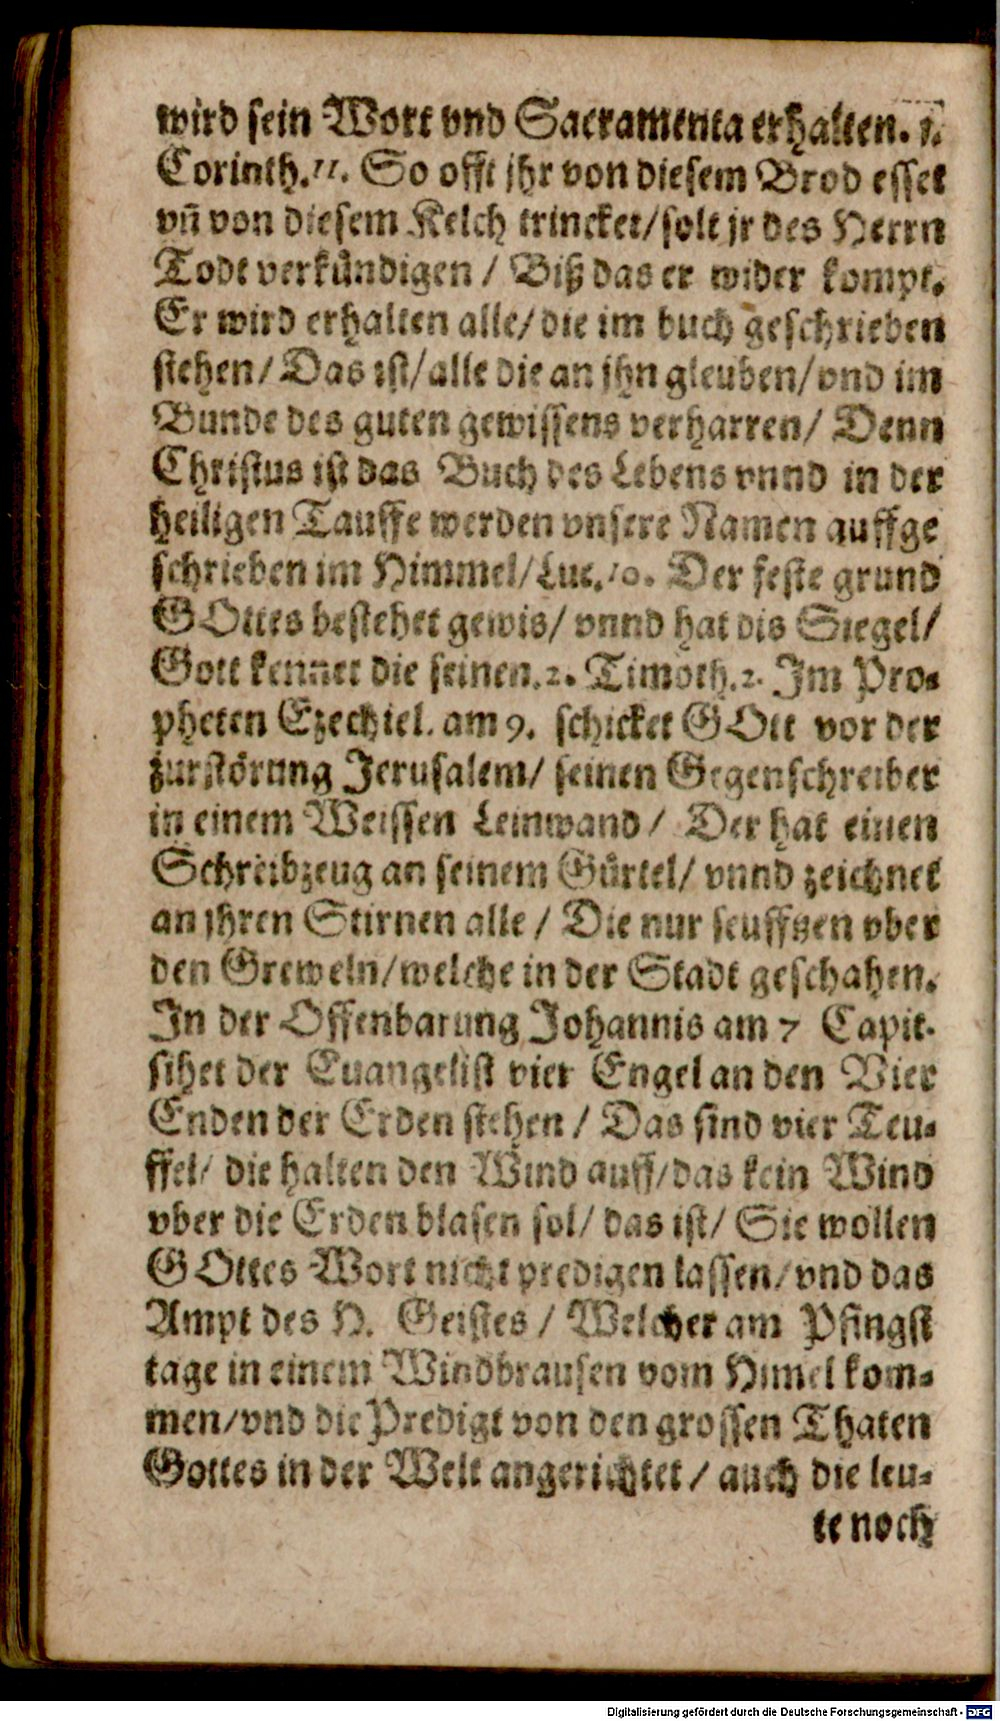 wird sein Wort vnd Sacramenta erhalten. 1.
Corinth. 11. So offt jhr von diesem Brod esset
vñ von diesem Kelch trincket/ solt jr des Herrn
Todt verkündigen / Biß das er wider kompt.
Er wird erhalten alle/ die im buch geschrieben
stehen/ Das ist/ alle die an jhn gleuben/ vnd im
Bunde des guten gewissens verharren/ Denn
Christus ist das Buch des Lebens vnnd in der
heiligen Tauffe werden vnsere Namen auffge
schrieben im Himmel/ Luc. 10. Der feste grund
GOttes bestehet gewis/ vnnd hat dis Siegel/
Gott kennet die seinen. 2. Timoth. 2. Im Pro-
pheten Ezechiel. am 9. schicket GOtt vor der
zurstörung Jerusalem/ seinen Gegenschreiber
in einem Weissen Leinwand / Der hat einen
Schreibzeug an seinem Gürtel/ vnnd zeichnet
an jhren Stirnen alle / Die nur seufftzen vber
den Greweln/ welche in der Stadt geschahen.
In der Offenbarung Johannis am 7 Capit.
sihet der Euangelist vier Engel an den Vier
Enden der Erden stehen / Das sind vier Teu-
ffel/ die halten den Wind auff/ das kein Wind
vber die Erden blasen sol/ das ist/ Sie wollen
GOttes Wort nicht predigen lassen/ vnd das
Ampt des H. Geistes / Welcher am Pfingst
tage in einem Windbrausen vom Himel kom-
men/ vnd die Predigt von den grossen Thaten
Gottes in der Welt angerichtet / auch die leu-
te noch
Digitalisierung gefördert durch die Deutsche Forschungsgemeinschaft - DFG